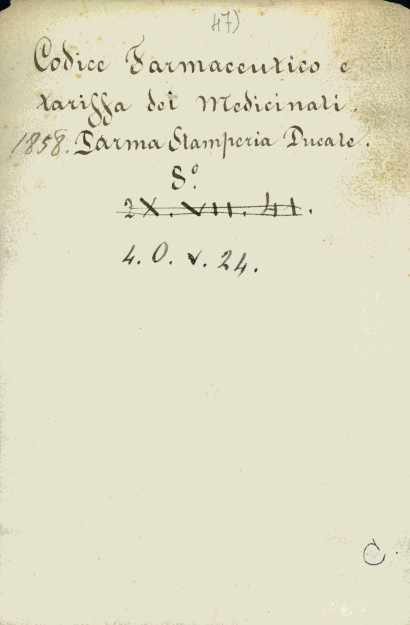 47)
Codice Farmaceutico e
tariffa dei Medicinali.
1858. Parma Stamperia Ducale.
8.º
2X. VII. 41.
4. O. v. 24.
C